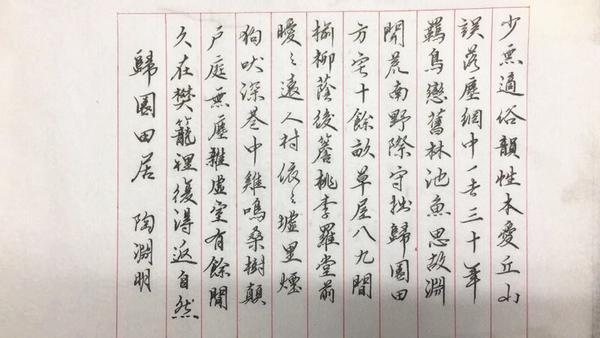 少無適俗韻性本愛丘山
誤落塵網中一去三十年
羈鳥戀舊林池魚思故淵
開荒南野際守拙歸園田
方宅十餘畝草屋八九間
榆柳蔭後簷桃李羅堂前
曖〻遠人村依〻墟里煙
狗吠深巷中雞鳴桑樹顛
戶庭無塵雜虛室有餘閒
久在樊籠裡復得返自然
歸園田居 陶淵明